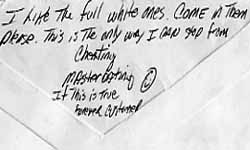 I Like the full white ones. COME in Them
please. This is The only way I CAN stop from
Cheating
MAsterbating
If This is True
forever customer